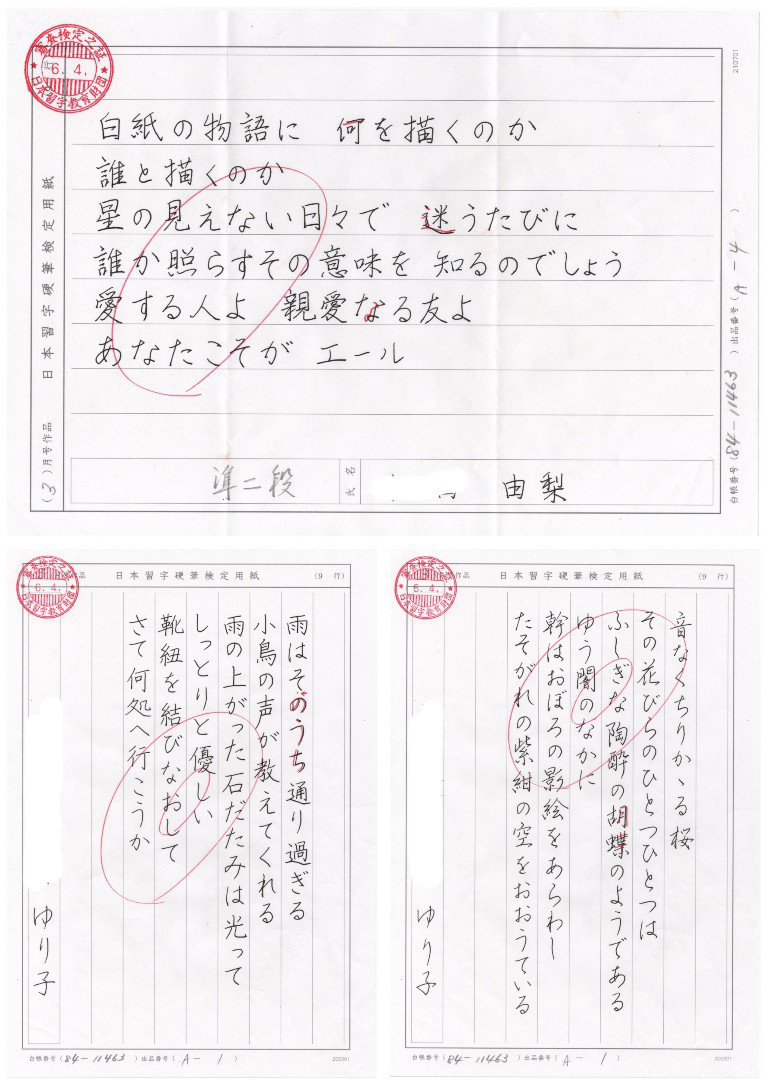 審査検定之証
6.4.
日本習字教育財団
210701
日本習字硬筆検定用紙
(3)月号作品
白紙の物語に 何を描くのか
誰と描くのか
星の見えない日々で 迷うたびに
誰か照らすその意味を 知るのでしょう
愛する人よ 親愛なる友よ
あなたこそが エール
準二段
氏名
由梨
台帳番号(84-11463)出品番号(A-4)
審査検定之証
6.4.
日本習字教育財団
作品 日本習字硬筆検定用紙 (9行)
雨はそのうち通り過ぎる
小鳥の声が教えてくれる
雨の上がった石だたみは光って
しっとりと優しい
靴紐を結びなおして
さて何処へ行こうか
ゆり子
台帳番号(84-11463)出品番号(A-1)
200301
審査検定之証
6.4.
日本習字教育財団
作品 日本習字硬筆検定用紙 (9行)
音なくちりかゝる桜
その花びらのひとつひとつは
ふしぎな陶酔の胡蝶のようである
ゆう闇のなかに
幹はおぼろの影絵をあらわし
たそがれの紫紺の空をおおうている
ゆり子
台帳番号(84-11463)出品番号(A-1)
200301